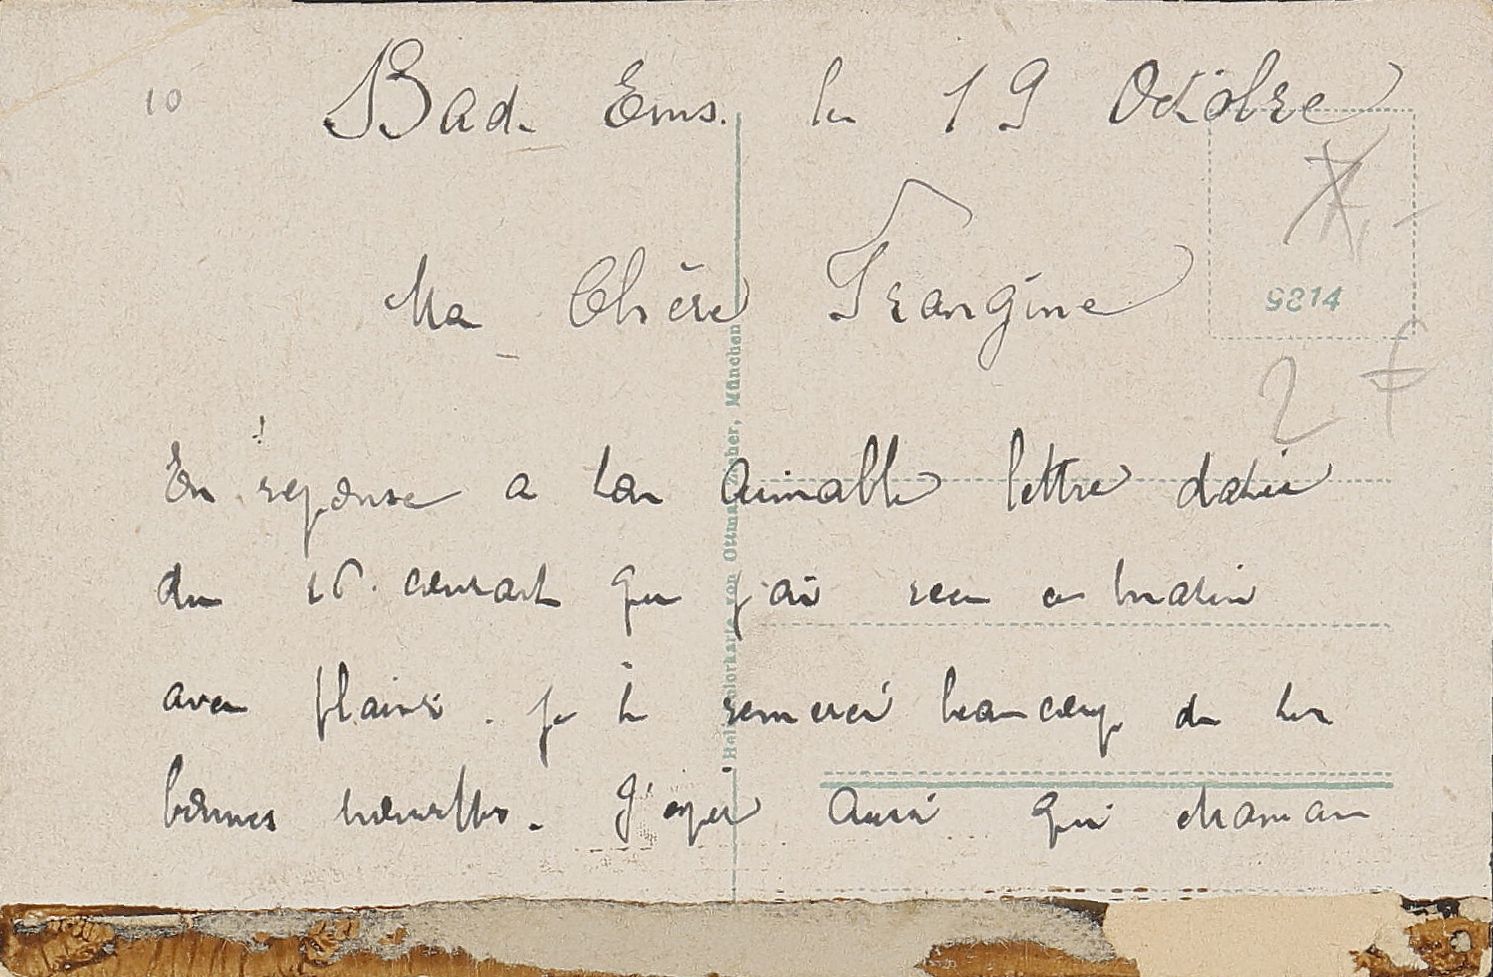 10
Bad. Ems. le 19 Octobre
Ma Chère Frangine
9214
2 f
En reponse a ton aimable lettre datée
du 16. courant que j'ai recu ce matin
avec plaisir. je te remercie beaucoup de tes
bonnes nouvelles. J'espere aussi que
Heliocolorkarte von Ottmar Zieher, München